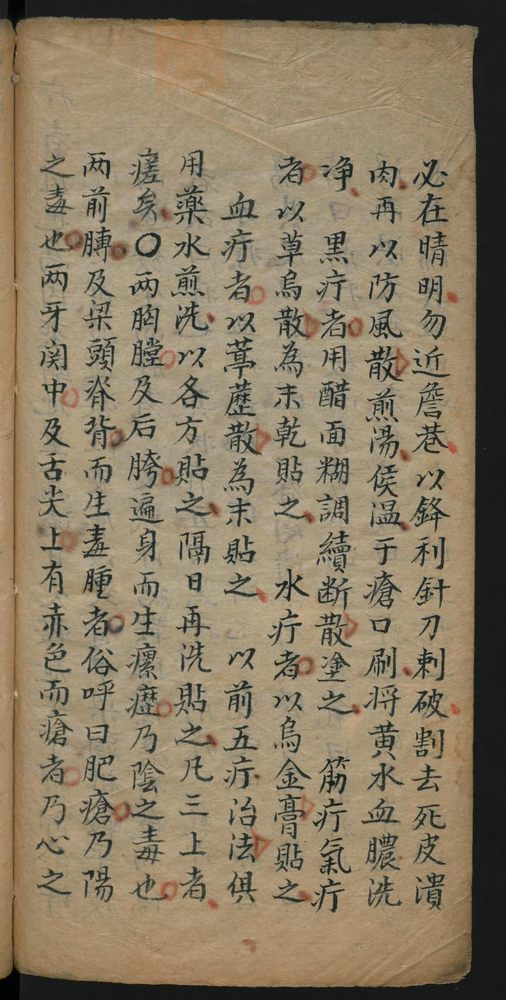 必在晴明勿近詹巷以鋒利針刀刺破割去死皮潰
肉再以防風散煎湯侯温于瘡口刷将黄水血膿洗
净 黒疔者用醋面糊調續断散塗之 筋疔氣疔
者以草烏散為末乾貼之 水疔者以烏金膏貼之
血疔者以葶藶散為末貼之 以前五疔治法俱
用藥水煎洗以各方貼之隔日再洗貼之凡三上者
瘥矣〇两胸膛及后胯遍身而生瘰癧乃陰之毒也
两前膊及梁頭脊背而生毒腫者俗呼曰肥瘡乃陽
之毒也两牙関中及舌尖上有赤色而瘡者乃心之